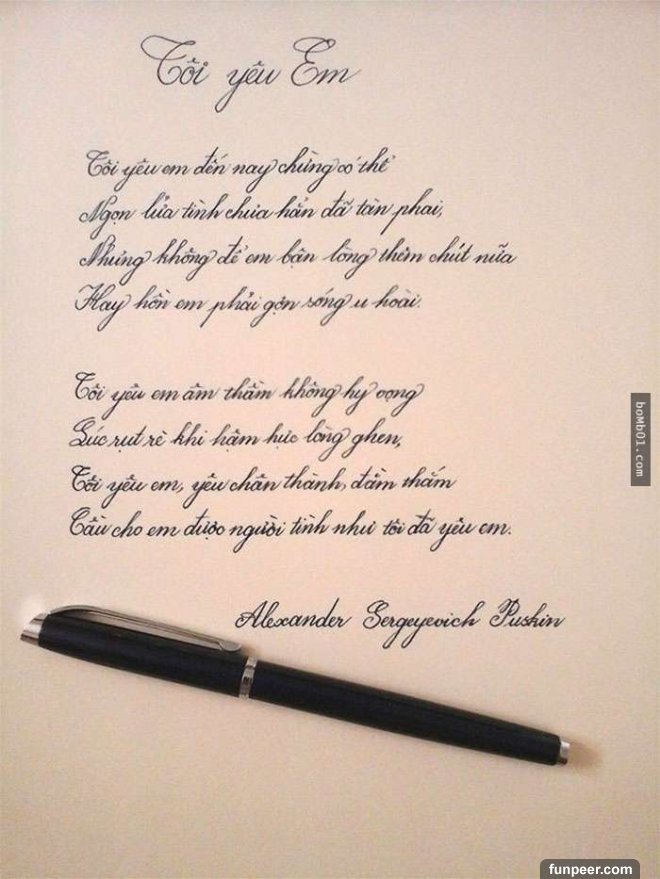 Tôi yêu Em
Tôi yêu em đến nay chừng có thể
Ngọn lửa tình chưa hẳn đã tàn phai,
Nhưng không để em bận lòng thêm chút nữa
Hay hồn em phải gợn sóng u hoài.
Tôi yêu em âm thầm không hy vọng
Lúc rụt rè khi hậm hực lòng ghen,
Tôi yêu em, yêu chân thành, đằm thắm
Cầu cho em được người tình như tôi đã yêu em.
Alexander Sergeyevich Puskin
boMb01.com
funpeer.com